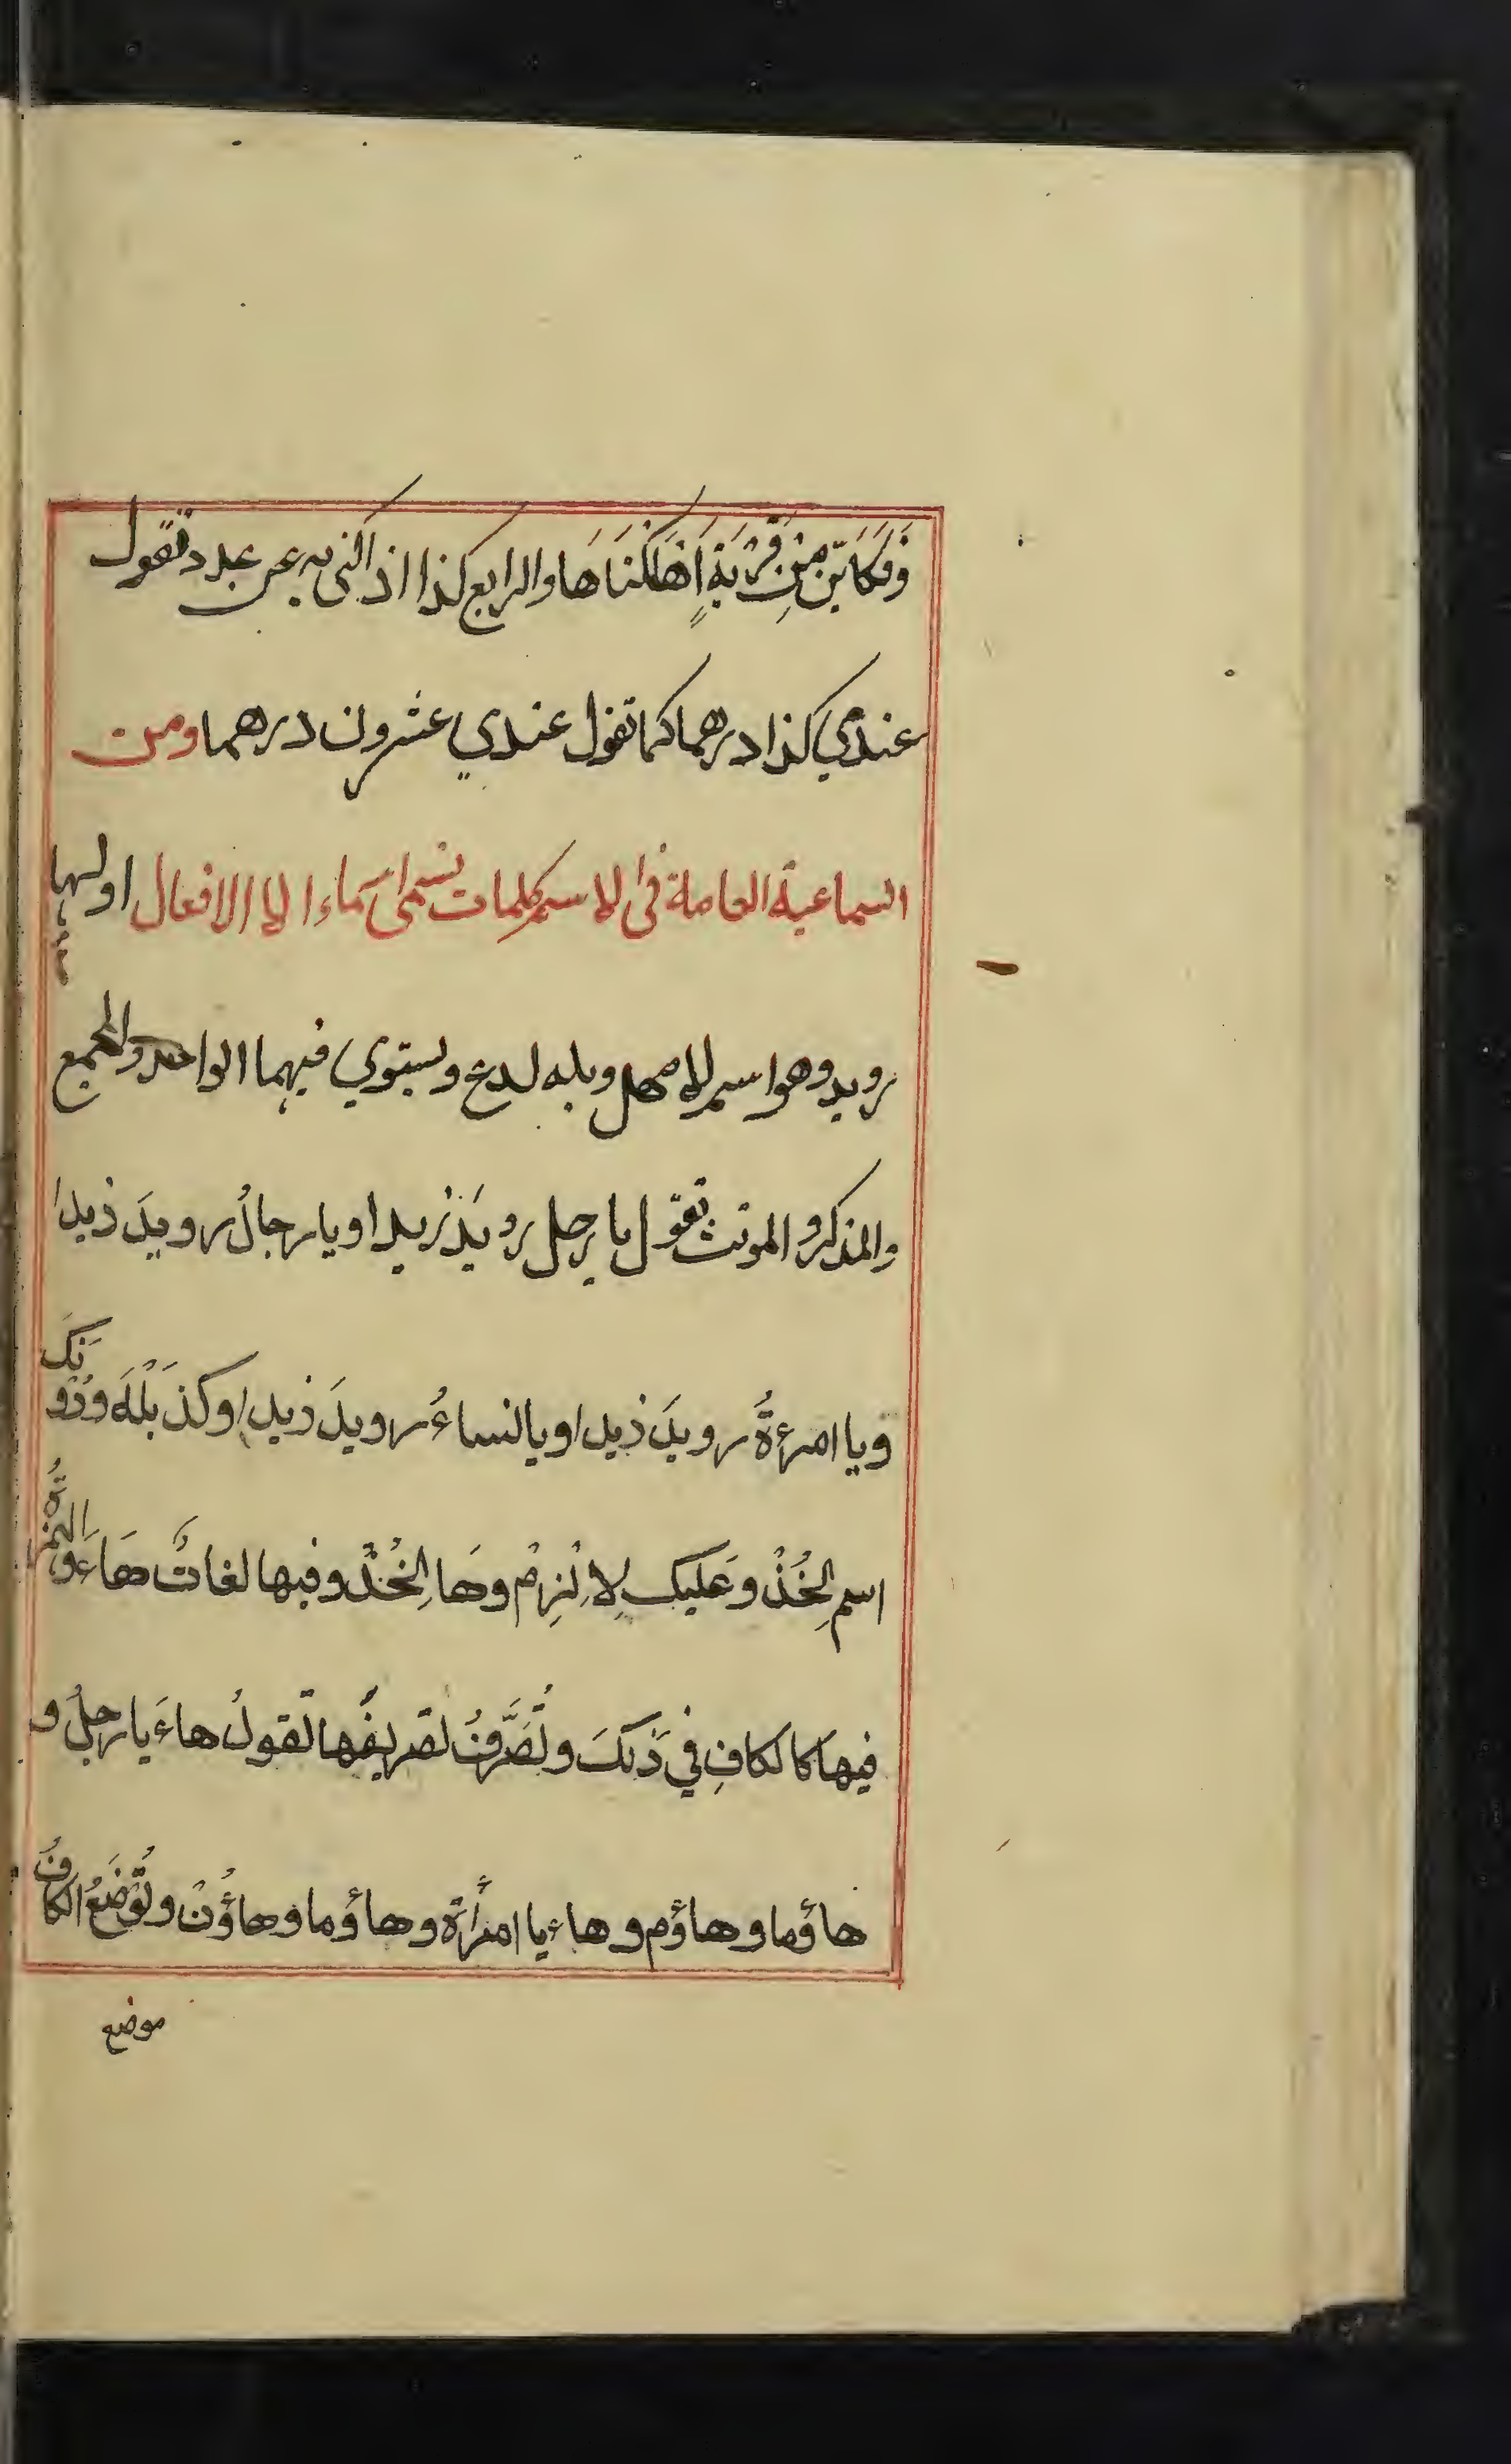 وَفَكَايّن مِنْ قَرْيَةٍ اَهَلكْنَاهَا والرابع كذا اذ اكنى به عن عدد تقول
عندي كذا درهما كما تقول عندي عشرون درهما ومن
السماعية العاملة فى الاسم كلمات تسمى اسَماء الافعال اولها
رويد وهو اسم لامهل وبله لدع ويستوي فيهما الواحد والجمع
والمذكر والمونث تقول يا رجل رويَدَ زيدا ويا رجالُ رويدَ ذيدا
ويا امرءةُ رويدَ ذيدا ويا لنساءُ رويدَ ذيدا وكذ بَلْهَ ودُونَكَ
اسم لِخُذْ وعَليك لِاِلْزِمْ وهَا لِخُذْ وفيها لغاتٌ هَاءَ والهمزةُ
فيها كالكافِ في ذَلكَ وتُصَرَّفُ تصريفُها تقولُ هاءَ يا رجلُ و
هاؤما وهاؤم وهاءِ يا امرأة وهاؤما وهاؤُنْ وتُوْضَعُ الكافُ
موضع